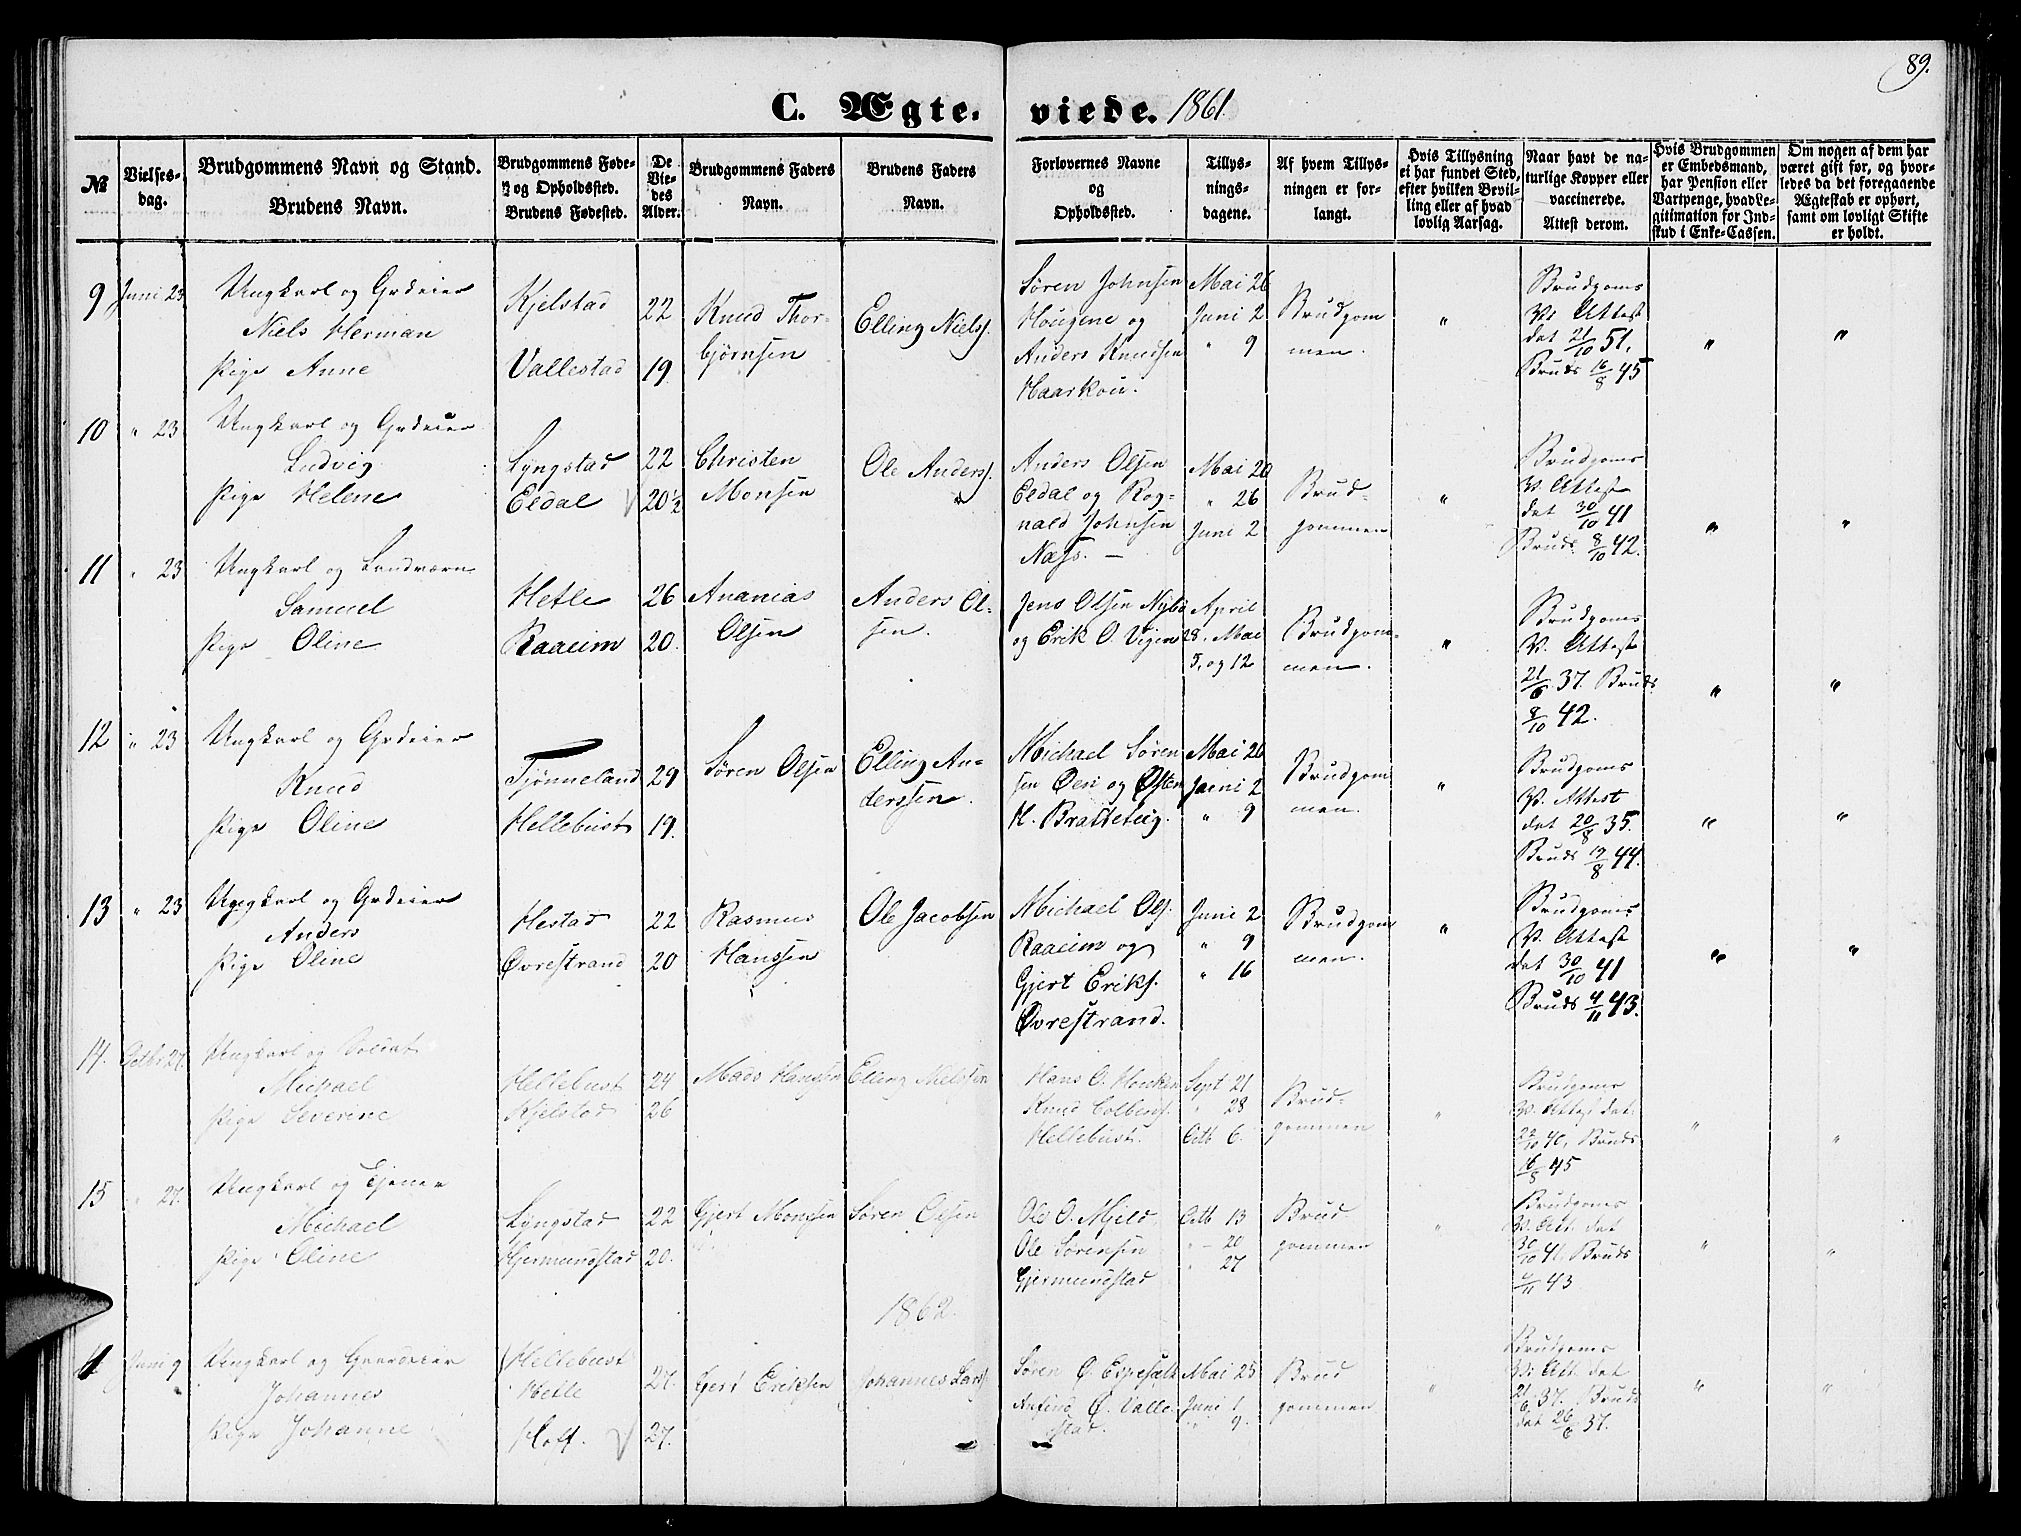 89.
C. Ægte-viede. 1861.
№
Vielses-
dag.
Brudgommens Navn og Stand.
Brudens Navn.
Brudgommens Føde-
og Opholdssted.
Brudens Fødested.
De
Vie-
des
Alder.
Brudgommens Faders
Navn.
Brudens Faders
Navn.
Forlovernes Navne
og
Opholdssted.
Tillys-
nings-
dagene.
Af hvem Tillys-
ningen er for-
langt.
Hvis Tillysning
ei har fundet Sted,
efter hvilken Bevil-
ling eller af hvad
lovlig Aarsag.
Naar havt de na-
turlige Kopper eller
vaccinerede.
Attest derom.
Hvis Brudgommen
er Embedsmand,
har Pension eller
Vartpenge, hvad Le-
gitimation for Ind-
skud i Enke-Cassen.
Om nogen af dem har
været gift før, og hvor-
ledes da det foregaaende
Ægteskab er ophørt,
samt om lovligt Skifte
er holdt.
9 Juni 23
Ungkarl og Grdeier
Niels Herman
Pige Anne
Kjelstad
Vallestad
22
19
Knud Thor-
bjørnsen
Elling Nielss.
Søren Johnsen
Hougene og
Anders Knudsen
Haarkou.
Mai 26
Juni 2
" 9
Brudgom
men.
"
Brudgoms
V. Attest
dat 21/10 51.
Bruds 16/8 45
"
"
10 " 23
Ungkarl og Grdeier
Ludvig
Pige Helene
Lyngstad
Eldal
22
20½
Christen
Monsen
Ole Anderss.
Anders Olsen
Eldal og Rog-
nald Johnsen
Næss. —
Mai 20
" 26
Juni 2
Brud-
gommen
"
Brudgoms
V. Attest
dat 30/10 41
Bruds 8/10 42.
"
"
11 " 23
Ungkarl og Landværn
Samuel
Pige Oline
Hetle
Raaeim
26
20.
Ananias
Olsen
Anders Ol-
sen.
Jens Olsen Nybø
og Erik O. Vigen
April
28. Mai
5. og 12
Brudgom-
men.
"
Brudgoms
V. Attest
21/6 37. Bruds
9/10 42.
"
"
12 " 23
Ungkarl og Grdeier
Knud
Pige Oline
Tjønneland
Hellebust
29
19.
Søren Olsen
Elling An-
derssen.
Michael Søren
sen Øen og Østen
H. Bratteteig.
Mai 26
Juni 2
" 9
Brudgom
men.
"
Brudgoms
V. Attest
dat 20/8 35.
Bruds 19/8 44.
"
"
13 " 23
Ungkarl og Grdeier
Anders
Pige Oline
Hestad
Øvrestrand
22
20
Rasmus
Hanssen
Ole Jacobsen
Michael Ols.
Raaeim og
Gjert Eriks.
Øvrestrand.
Juni 2
" 9
" 16
Brudgom
men.
"
Brudgoms
V. Attest
dat 30/10 41
Bruds 4/11 43.
"
"
14. Octbr 27.
Ungkarl og Soldat
Michael
Pige Severine
Hellebust
Kjelstad
24
26
Mads Hanssen
Elling Nielssen
Hans O. Houkaa
Knud Colbens.
Hellebust.
Sept 21
" 28
Octb 6.
Brud-
gommen
"
Brudgoms
V. Attest dat.
22/10 40, Bruds
16/8 45
"
"
15 " 27.
Ungkarl og Tjener
Michael
Pige Oline
Lyngstad
Gjermundstad
22
20.
Gjert Monssen
Søren Olsen
Ole O. Mjeld
Ole Sørensen
Gjermundstad
Octb 13
" 20
" 27
Brud
gommen
"
Brudgoms
V. Att. dat
30/10 41 Bruds
4/11 43
"
"
1862.
1 Juni 9
Ungkarl og Gaardeier
Johannes
Pige Johanne
Hellebust
Hetle
Hoff.
27.
27.
Gjert Eriksen
Johannes Larss.
Søren O. Espesæth
Anfind O. Valle-
stad.
Mai 25
Juni 1
" 9.
Brud
gommen
"
Brudgoms
V. Att. dat
21/6 37. Bruds
dat 26/6 37.
"
"